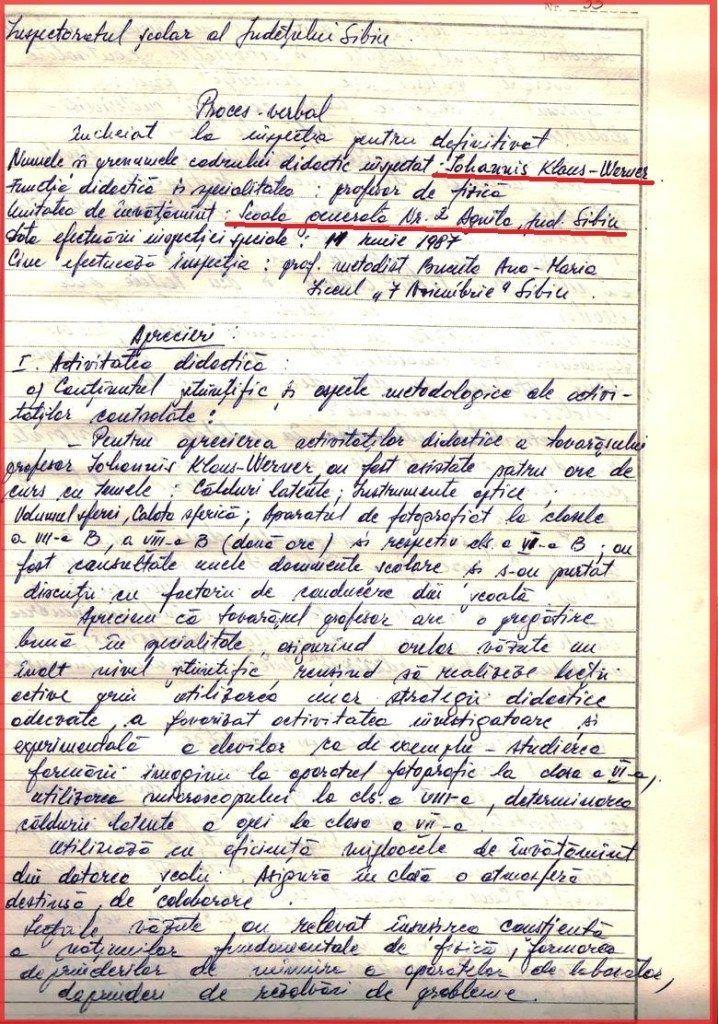 33
Inspectoratul școlar al Județului Sibiu.
Proces-verbal
încheiat la inspecția pentru definitivat.
Numele și prenumele cadrului didactic inspectat: Iohannis Klaus-Werner
Funcția didactică și specialitatea: profesor de fizică
Unitatea de învățămînt: Școala generală Nr. 2 Agnita, jud. Sibiu
Data efectuării inspecției speciale: 11 iunie 1987
Cine efectuează inspecția: prof. metodist Ana-Maria
Liceul "7 Noiembrie" Sibiu.
Aprecieri:
I. Activitatea didactică:
a) Conținutul științific și aspecte metodologice ale activi-
tăților controlate:
- Pentru aprecierea activităților didactice a tovarășului
profesor Iohannis Klaus-Werner au fost asistate patru ore de
curs cu temele: Călduri latente; Instrumente optice;
Volumul sferei, Calota sferică; Aparatul de fotografiat la clasele
a VII-a B, a VIII-a B (două ore) și respectiv cls. a VI-a B; au
fost consultate unele documente școlare și s-au purtat
discuții cu factorii de conducere din școală
Apreciem că tovarășul profesor are o pregătire
bună în specialitate, asigurînd orelor văzute un
înalt nivel științific reușind să realizeze lecții
active prin utilizarea unor strategii didactice
adecvate, a favorizat activitatea investigatoare și
experimentală a elevilor ca de exemplu - studierea
formării imaginii la aparatul fotografic la clasa a VI-a,
utilizarea microscopului la cls. a VIII-a, determinarea
căldurii latente a gheții la clasa a VII-a.
Utilizează cu eficiență mijloacele de învățămînt
din dotarea școlii. Asigură în clasă o atmosferă
destinsă, de colaborare.
Lecțiile văzute au relevat însușirea conștientă
a noțiunilor fundamentale de fizică, formarea
deprinderilor de mînuire a aparatelor de laborator,
deprinderi de rezolvări de probleme.